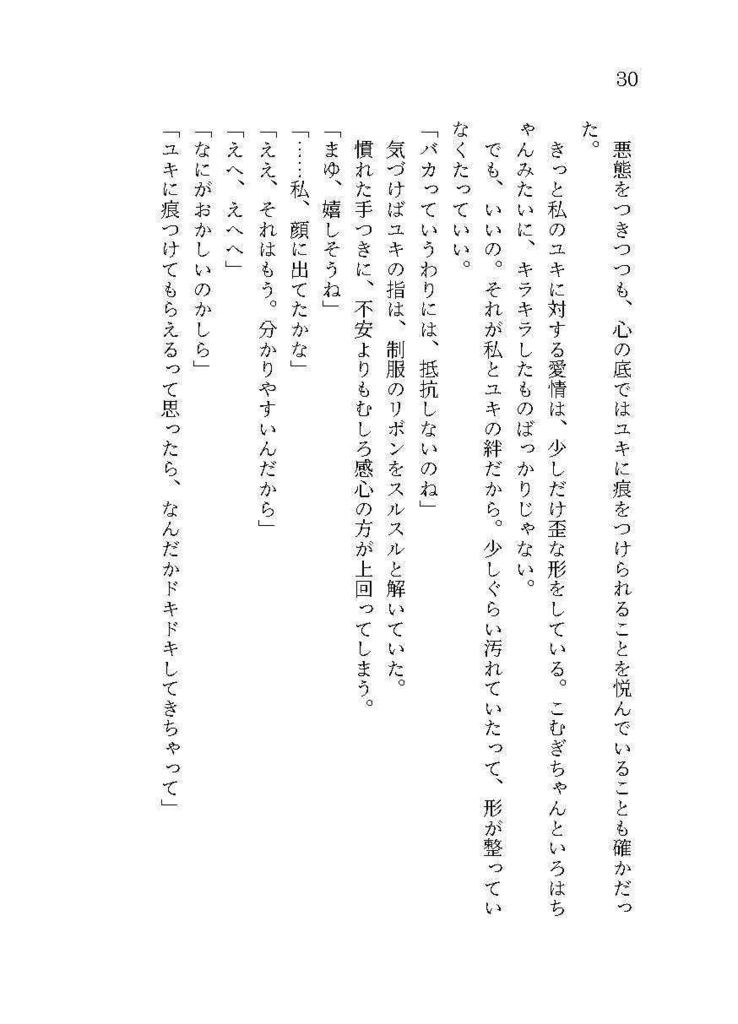 30
　悪態をつきつつも、心の底ではユキに痕をつけられることを悦んでいることも確かだっ
た。
　きっと私のユキに対する愛情は、少しだけ歪な形をしている。こむぎちゃんといろはち
ゃんみたいに、キラキラしたものばっかりじゃない。
　でも、いいの。それが私とユキの絆だから。少しぐらい汚れていたって、形が整ってい
なくたっていい。
「バカっていうわりには、抵抗しないのね」
　気づけばユキの指は、制服のリボンをスルスルと解いていた。
　慣れた手つきに、不安よりもむしろ感心の方が上回ってしまう。
「まゆ、嬉しそうね」
「……私、顔に出てたかな」
「ええ、それはもう。分かりやすいんだから」
「えへ、えへへ」
「なにがおかしいのかしら」
「ユキに痕つけてもらえるって思ったら、なんだかドキドキしてきちゃって」